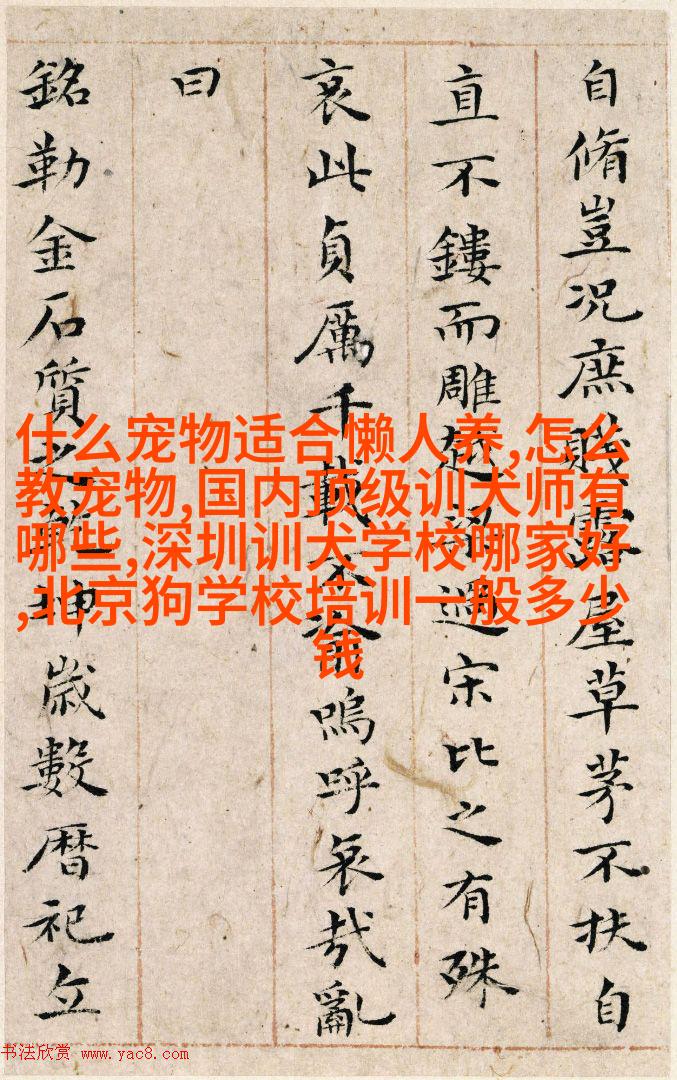 自脩豈況庶賤露屋草茅不扶自
直不鏤而雕越過宋比之有殊
哀此貞厲千載不嗚呼哀哉亂
曰
銘勒金石質之坤歲數曆祀立
什么宠物适合懒人养,怎么
教宠物,国内顶级训犬师有
哪些,深圳训犬学校哪家好
,北京狗学校培训一般多少
钱
书法欣赏 www.yac8.com